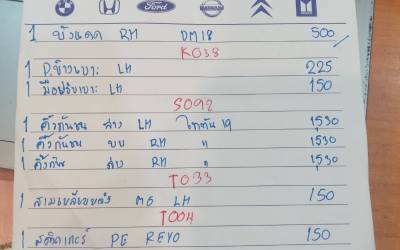 Ford NISSAN
1 บังแดด RH DM18 500
K038
1 P.ข้างเบาะ LH 225
1 มือปรับเบาะ LH 150
S092
1 คิ้วกันชน ล่าง LH ไททัน 19 1,530
1 คิ้วกันชน บน RH " 1,530
1 คิ้วกัน ล่าง RH " 1,530
T033
1 MG LH 150
T004
1 สติกเกอร์ PG REVO 150